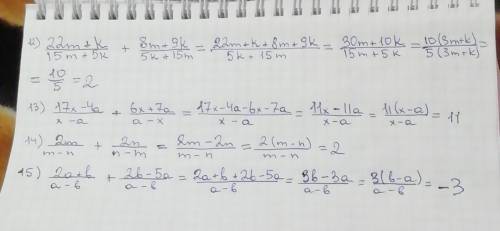 12) (22m+k)/(15m+5k) + (8m+9k)/(5k+15m) = (22m+k+8m+9k)/(5k+15m) = (30m+10k)/(15m+5k) = 10(3m+k)/5(3m+k) =
= 10/5 = 2
13) (17x-4a)/(x-a) + (6x+7a)/(a-x) = (17x-4a-6x-7a)/(x-a) = (11x-11a)/(x-a) = 11(x-a)/(x-a) = 11
14) 2m/(m-n) + 2n/(n-m) = (2m-2n)/(m-n) = 2(m-n)/(m-n) = 2
15) (2a+b)/(a-b) + (2b-5a)/(a-b) = (2a+b+2b-5a)/(a-b) = (3b-3a)/(a-b) = 3(b-a)/(a-b) = -3